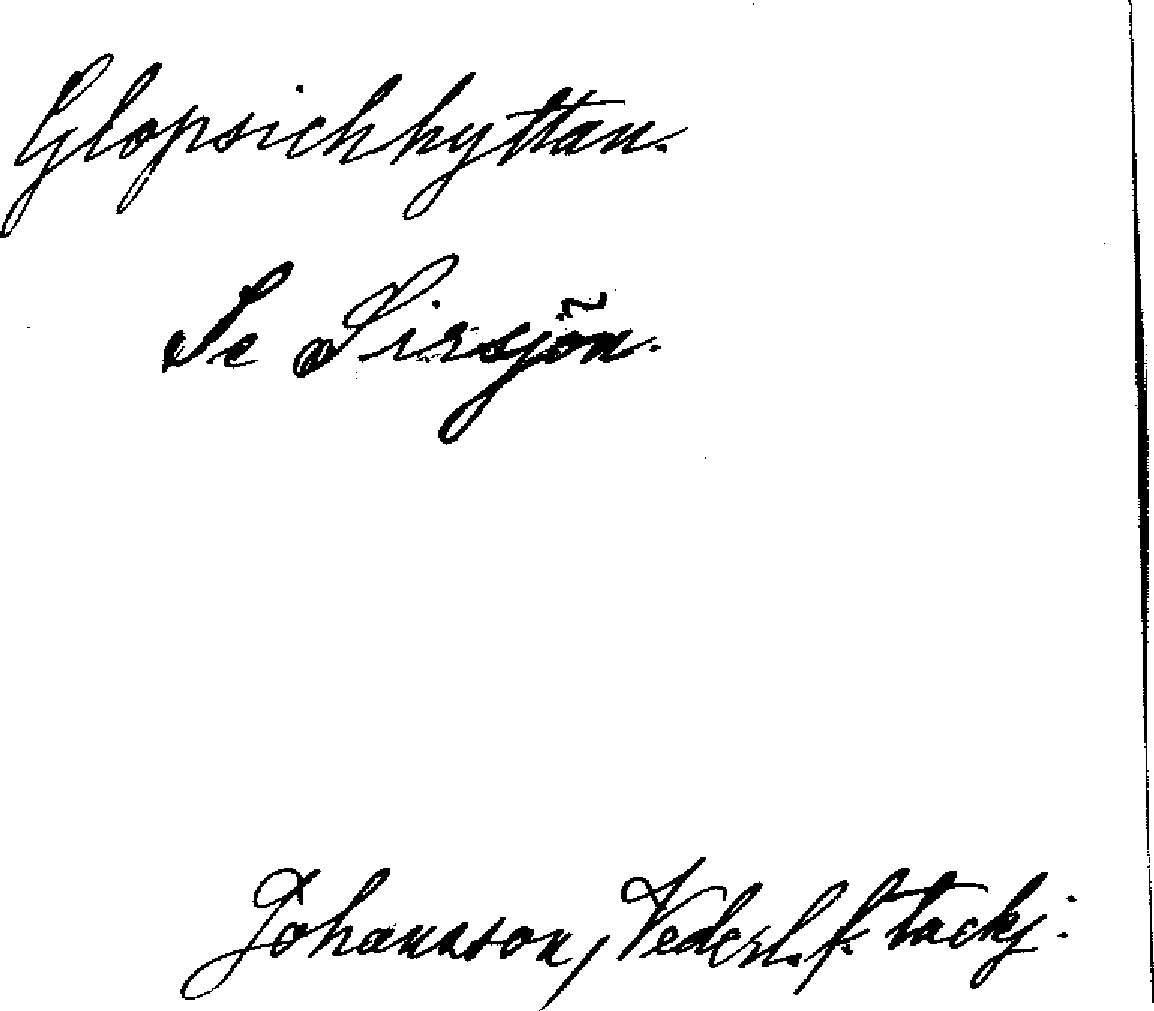 Glopsichhyttan.
Se Sirsjön.
Johansson, Vederl. f. tackj: